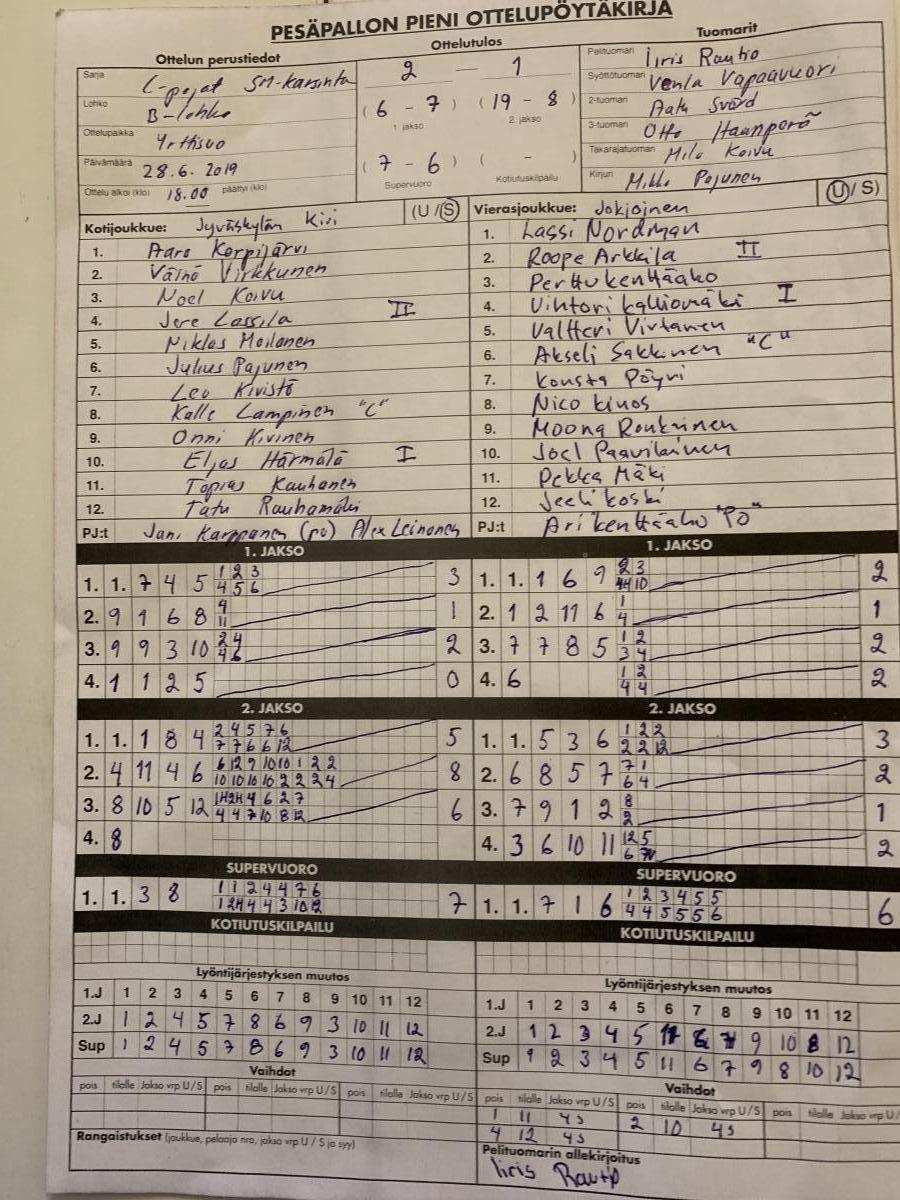 PESÄPALLON PIENI OTTELUPÖYTÄKIRJA
Ottelun perustiedot
Sarja C-pojat SM-karsinta
Lohko B-lohko
Ottelupaikka
Päivämäärä 28.6.2019
Ottelu alkoi (klo) 18.00 päättyi (klo)
Ottelutulos
2 – 1
( 6 - 7 ) ( 19 - 8 )
1 jakso 2. jakso
( 7 - 6 ) ( - )
Supervuoro Kotiutuskilpailu
Tuomarit
Pelituomari Iiris Rautio
Syöttötuomari Venla Vapaavuori
2-tuomari Aatu Svärd
3-tuomari Otto Haanperä
Takarajatuomari Milo Koivu
Kirjuri Mikko Pajunen
Kotijoukkue: Jyväskylän Kiri (U / S)
1. Aaro Korpijärvi
2. Väinö Virkkunen
3. Noel Koivu
4. Jere Lassila II
5. Niklas Moilanen
6. Julius Pajunen
7. Leo Kivistö
8. Kalle Lampinen "C"
9. Onni Kivinen
10. Eljas Härmälä I
11. Topias Kauhanen
12. Tatu Rauhamäki
PJ:t Jani Karppanen (po) Alex Leinonen
Vierasjoukkue: Jokioinen (U / S)
1. Lassi Nordman
2. Roope Arkkila II
3. Perttu kenttäaho
4. Vihtori kalliomäki I
5. Valtteri Virtanen
6. Akseli Sakkinen "C"
7. Konsta Pöyri
8. Nico kinos
9. Moona Roukainen
10. Joel Paavilainen
11. Pekka Mäki
12. Jeeli koski
PJ:t Ari kenttäaho "PO"
1. JAKSO
1. 1. 7 4 5 1 2 3 3
4 5 6
2. 9 1 6 8 4 1
11
3. 9 9 3 10 2 4 2
4 6
4. 1 1 2 5 0
2. JAKSO
1. 1. 1 8 4 2 4 5 7 6 5
7 7 6 6 12
2. 4 11 4 6 6 12 9 10 10 1 2 2 8
10 10 10 10 2 2 2 4
3. 8 10 5 12 6
4 4 7 10 8 12
4. 8
SUPERVUORO
1. 1. 3 8 1 1 2 4 4 7 6 7
KOTIUTUSKILPAILU
Lyöntijärjestyksen muutos
1.J 1 2 3 4 5 6 7 8 9 10 11 12
2.J 1 2 4 5 7 8 6 9 3 10 11 12
Sup 1 2 4 5 7 8 6 9 3 10 11 12
Vaihdot
pois tilalle Jakso vrp U / S pois tilalle Jakso vrp U / S pois tilalle Jakso vrp U / S
Rangaistukset (joukkue, pelaaja nro, jakso vrp U / S ja syy)
1. JAKSO
1. 1. 1 6 9 2 3 2
2. 1 2 11 6 1 1
4
3. 7 7 8 5 1 2 2
3 4
4. 6 1 2 2
4 4
2. JAKSO
1. 1. 5 3 6 1 2 2 3
2 2 12
2. 6 8 5 7 7 1 2
6 4
3. 7 9 1 2 8 1
2
4. 3 6 10 11 12 5 2
SUPERVUORO
1. 1. 7 1 6 1 2 3 4 5 5 6
4 4 5 5 5 6
KOTIUTUSKILPAILU
Lyöntijärjestyksen muutos
1.J 1 2 3 4 5 6 7 8 9 10 11 12
2.J 1 2 3 4 5 11 6 7 9 10 8 12
Sup 1 2 3 4 5 11 6 7 9 8 10 12
Vaihdot
pois tilalle Jakso vrp U / S pois tilalle Jakso vrp U / S pois tilalle Jakso vrp U /
1 11 4s 2 10 4s
4 12 4s
Pelituomarin allekirjoitus
Iiris Rautio